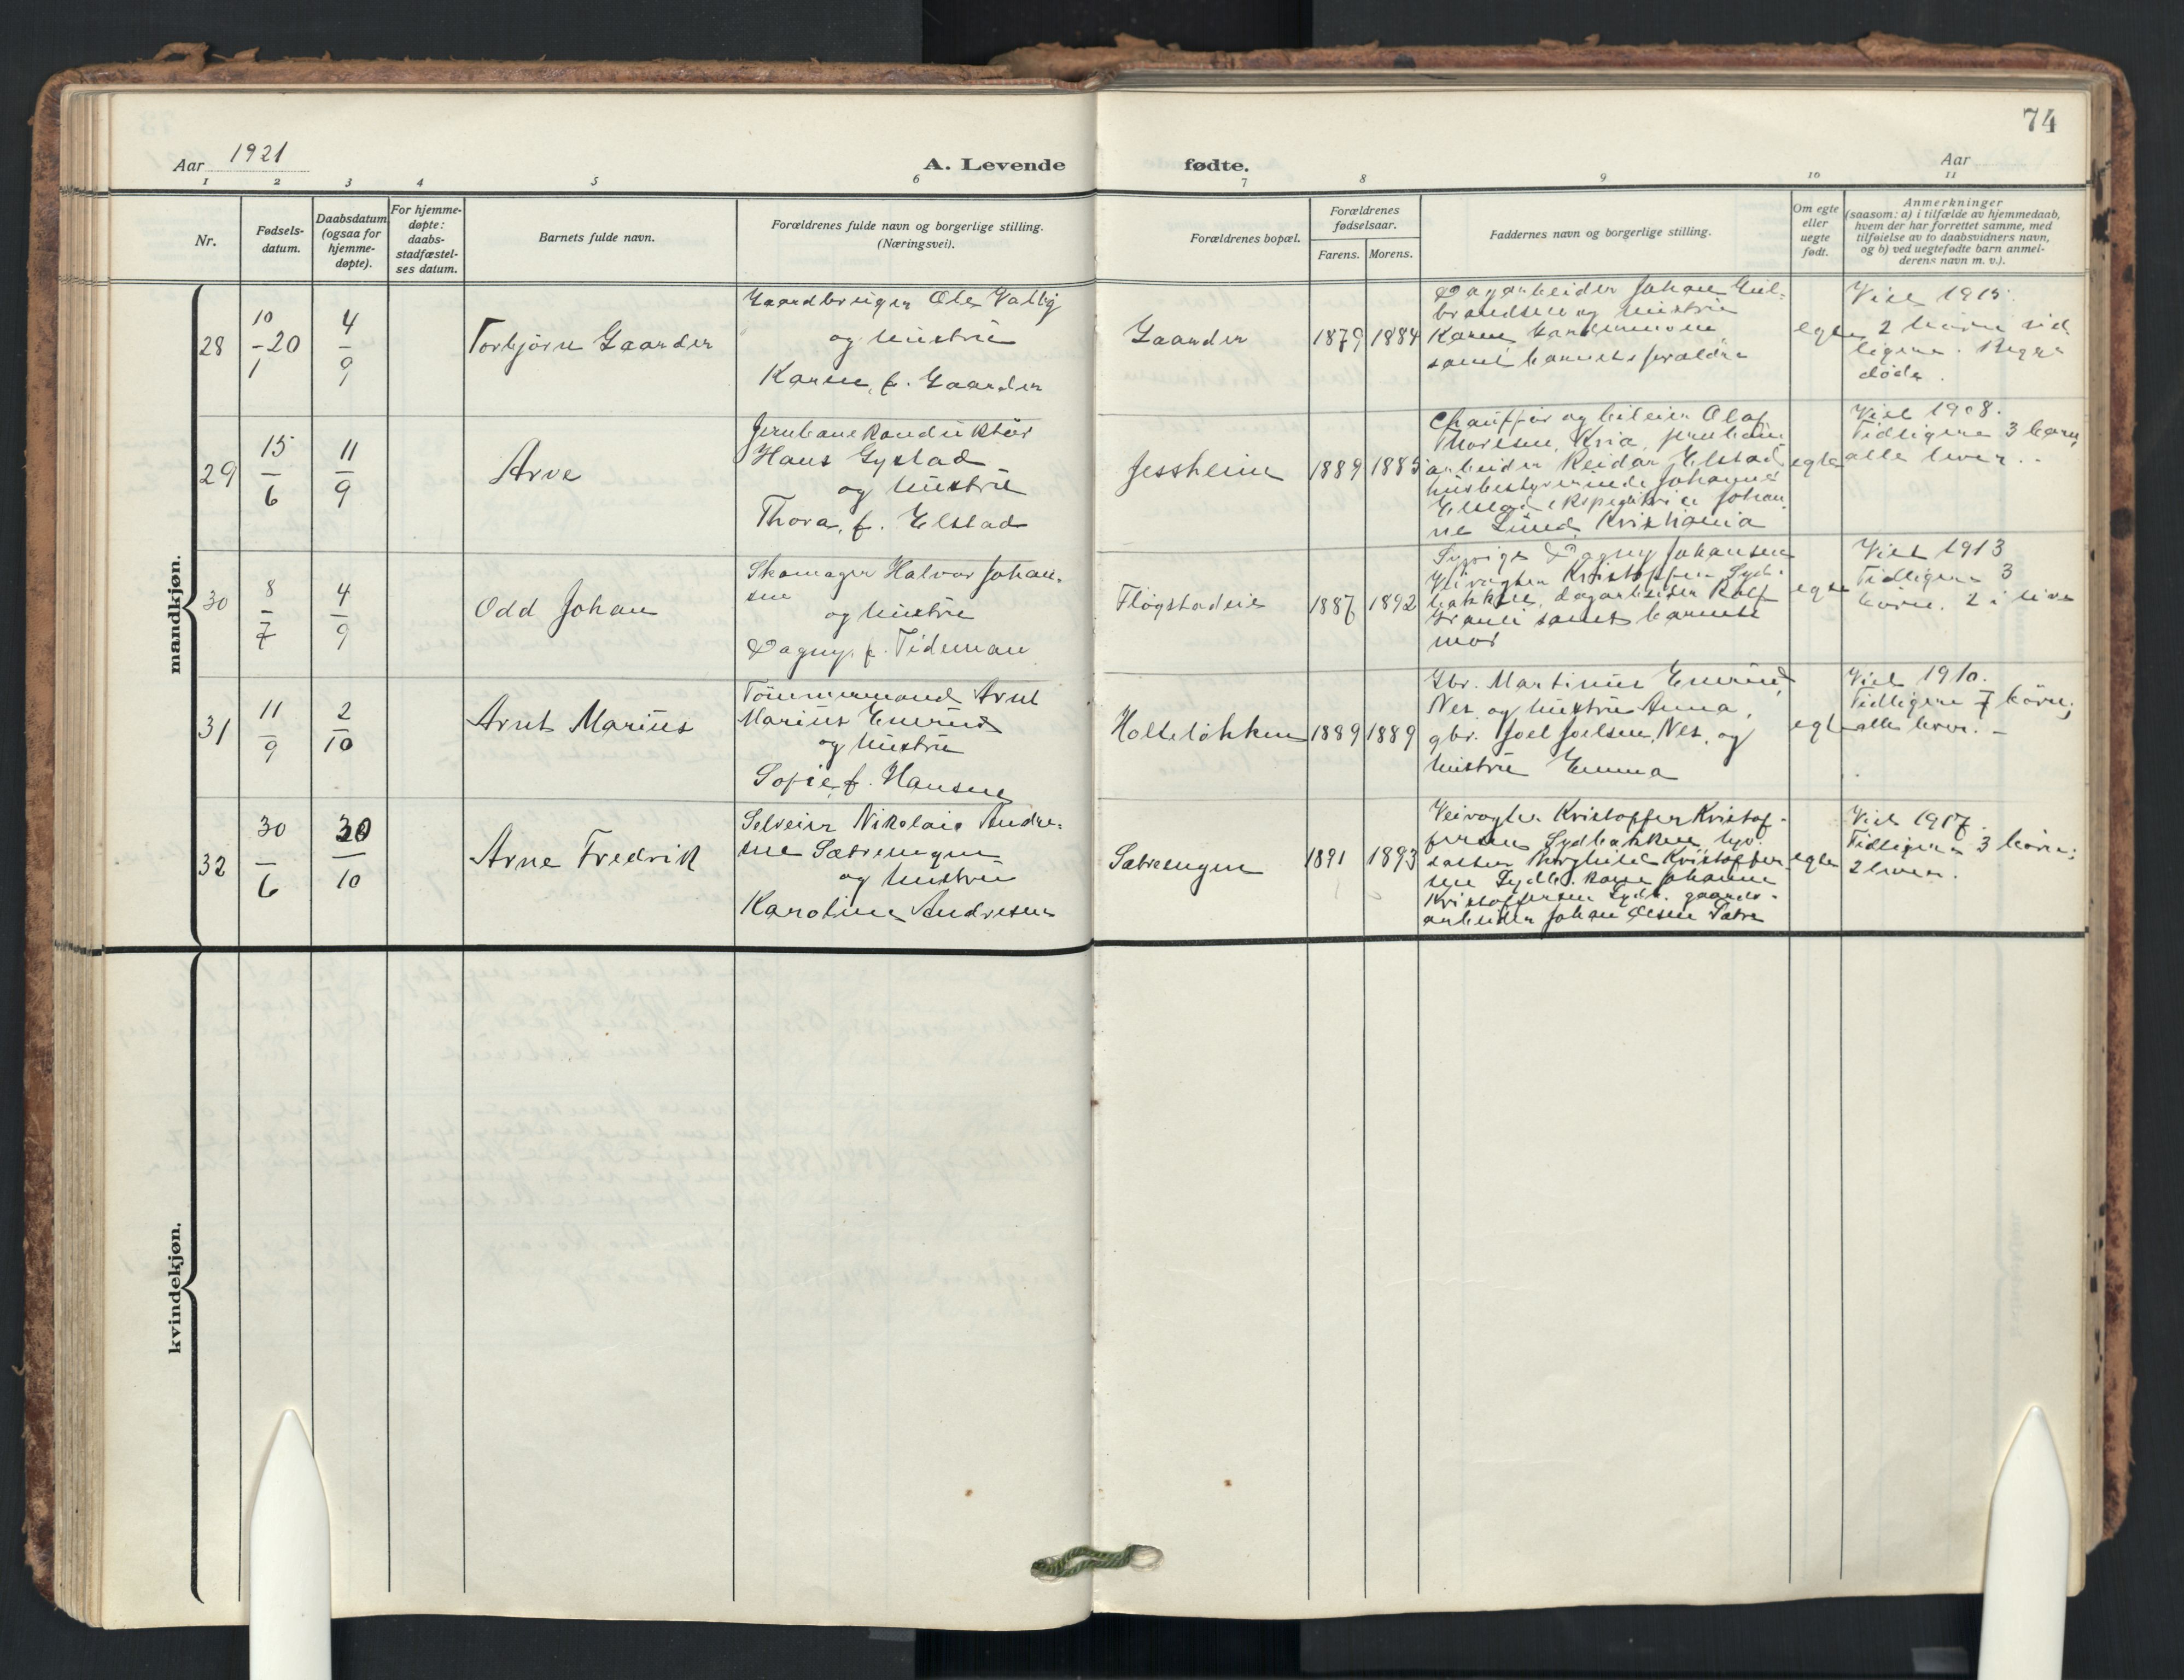 74
Aar 1921
A. Levende fødte.
Aar
1 2 3 4 5 6 7 8 9 10 11
Nr.
Fødsels-
datum.
Daabsdatum
(ogsaa for
hjemme-
døpte).
For hjemme-
døpte:
daabs-
stadfæstel-
ses datum.
Barnets fulde navn.
Forældrenes fulde navn og borgerlige stilling.
(Næringsvei).
Forældrenes bopæl.
Forældrenes
fødselsaar.
Farens. Morens.
Faddernes navn og borgerlige stilling.
Om egte
eller
uegte
født.
Anmerkninger
(saasom: a) i tilfælde av hjemmedaab,
hvem der har forrettet samme, med
tilføielse av to daabsvidners navn,
og b) ved uegtefødte barn anmel-
derens navn m. v.).
mandkjøn.
28
10
-20
1
4
9
Torbjørn Gaarder
Gaardbruger Ole Valby
og hustru
Karen, f. Gaarder
Gaarder
1879 1884
Dagarbeider Johan Gul-
brandsen og hustru
Karen
samt barnets forældre
egte
Viet 1915.
2 børn tid
ligere. Begge
døde.
29
15
6
11
9
Arve
Jernbanekonduktør
Hans Gystad
og hustru
Thora, f. Elstad
Jessheim
1889 1885
Chauffør og bileier Olaf
Thoresen, Kria, jernban
arbeider Reidar Elstad
husbestyrerinde Johanne
Elstad ekspeditrice Johan
ne Lund, Kristiania
egte
Viet 1908.
Tidligere 3 barn,
alle lever.
30
8
7
4
9
Odd Johan
Skomager Halvor Johan-
sen
og hustru
Dagny, f. Tideman
Fløgstadeie
1887 1892
Dagny Johansen
Veivogter Kristoffer Syd-
bakken, dagarbeider Rolf
Granli samt barnets
mor
egte
Viet 1913
Tidligere 3
børn. 2 i live
31
11
9
2
10
Arnt Marius
Tømmermand Arnt
Marius Enerud
og hustru
Sofie, f. Hansen
Holteløkken
1889 1889
Gbr. Martinus Enerud,
Nes og hustru Anna,
gbr. Joel Joelsen, Nes, og
hustru Emma
egte
Viet 1910.
Tidligere 7 børn;
alle lever. -
32
30
6
30
10
Arne Fredrik
Selveier Nikolai Andre-
sen Sætrengen
og hustru
Karoline Andresen
Sætrengen
1891 1893
Veivogter Kristoffer Kristof-
fersen Sydbakken, hps.
datter Borghild Kristoffer
sen Sydb. kone Johanne
Kristoffersen Sydb. gaards-
arbeider Johan Olsen Sætre
egte
Viet 1917.
Tidligere 3 børn;
2 lever.
kvindekjøn.